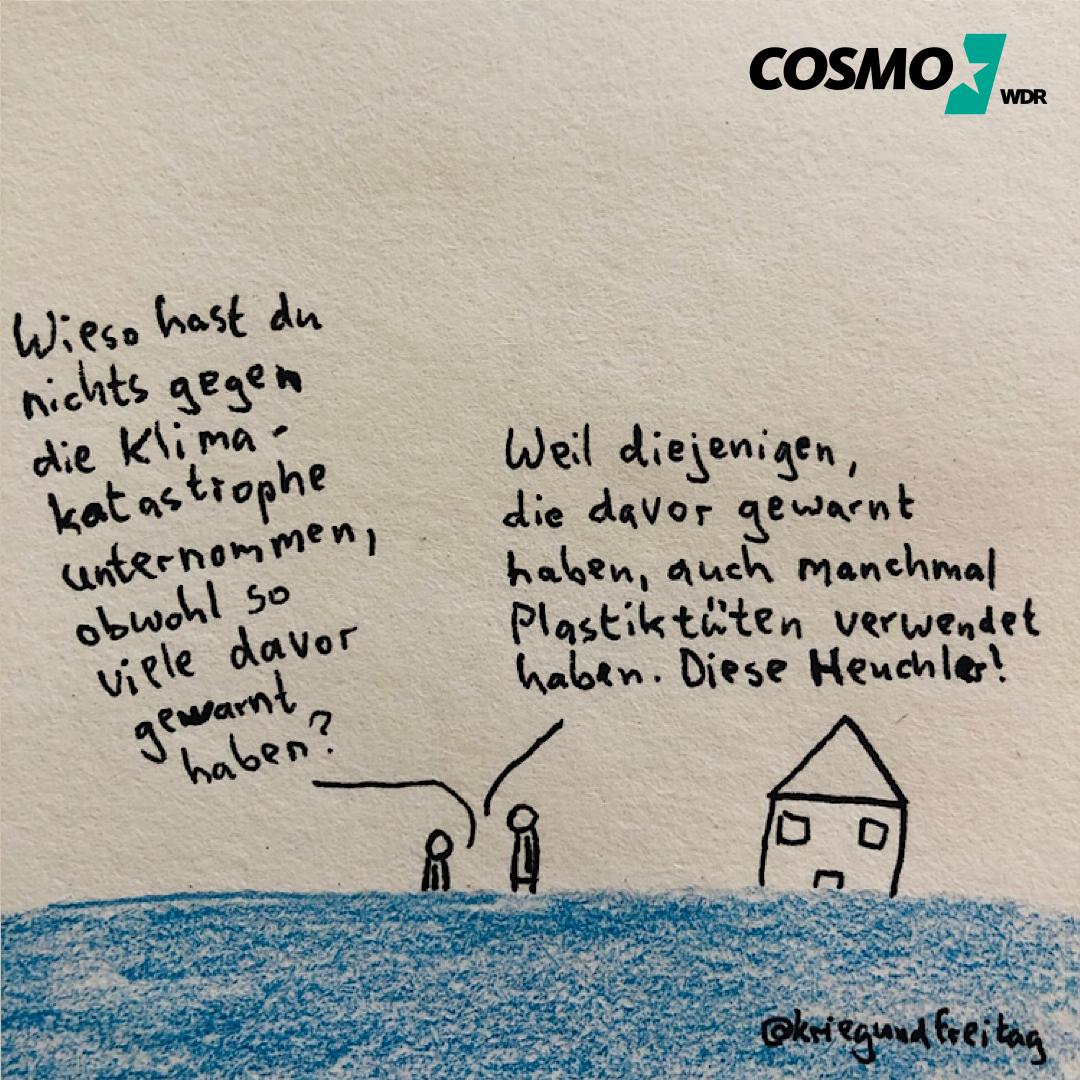 COSMO
WDR
Wieso hast du
nichts gegen
die Klima-
katastrophe
unternommen,
obwohl so
viele davor
gewarnt
haben?
Weil diejenigen,
die davor gewarnt
haben, auch manchmal
Plastiktüten verwendet
haben. Diese Heuchler!
@kriegundfreitag